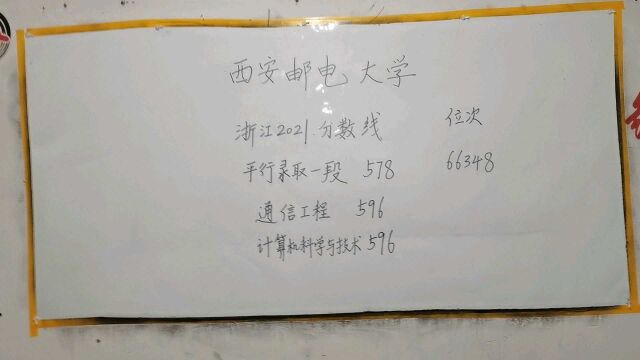 西安邮电大学
浙江2021.分数线 位次
平行录取一段 578 66348
通信工程 596
计算机科学与技术 596